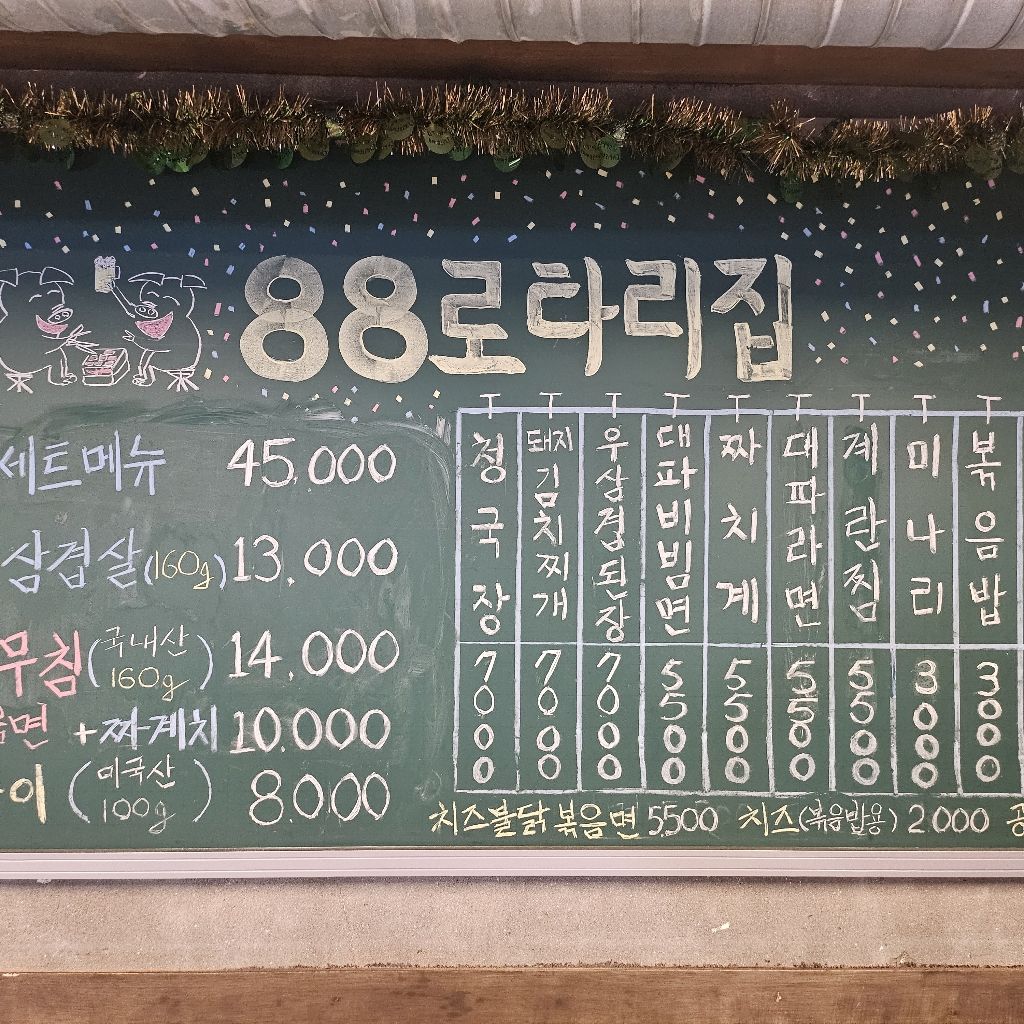 88로타리집
세트메뉴 45,000
삼겹살(160g) 13,000
무침(국내산 160g) 14,000
면 +짜계치 10,000
이 (미국산 100g) 8.000
청국장 7000
돼지김치찌개 7000
우삼겹된장 7000
대파비빔면 5500
짜치계 5500
대파라면 5500
계란찜 5500
미나리 3000
볶음밥 3000
치즈불닭볶음면 5,500 치즈(볶음밥용) 2.000 공